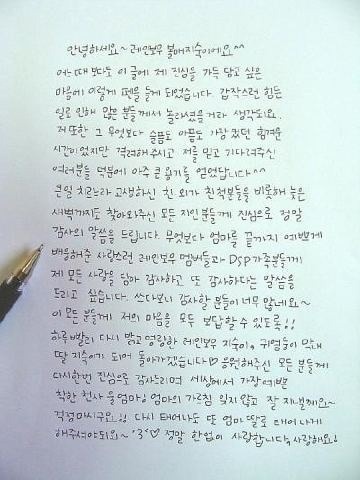 안녕하세요~ 레인보우 블매 지숙이에요^^
어느때 보다도 이 글에 제 진심을 가득 담고 싶은
마음에 이렇게 펜을 들게 되었습니다. 갑작스런 힘든
일로 인해 많은 분들께서 놀라셨을거라 생각되요.
저 또한 그 무엇보다 슬픔도 아픔도 가장 컸던 힘겨운
시간이었지만 격려해주시고 저를 믿고 기다려주신
여러분들 덕분에 아주 큰 용기를 얻었답니다^^
큰일 치르느라 고생하신 친.외가 친척분들을 비롯해 늦은
새벽까지도 찾아와주신 모든 지인분들께 진심으로 정말
감사의 말씀을 드립니다. 무엇보다 엄마를 끝까지 예쁘게
배웅해준 사랑스런 레인보우 멤버들과 DSP가족분들께
제 모든 사랑을 담아 감사하고 또 감사하다는 말씀을
드리고 싶습니다. 쓰다보니 감사할 분들이 너무 많네요~
이 모든 분들께 저의 마음을 모두 보답할 수 있도록!!
하루빨리 다시 밝고 명랑한 레인보우 지숙이, 귀염둥이 막내
딸 지숙이가 되어 돌아가겠습니다♡ 응원해주신 모든 분들께
다시한번 진심으로 감사드리며 세상에서 가장 예쁜
착한 천사 울엄마! 엄마의 가르침 잊지않고 잘 지낼께요~
걱정마시구요!! 다시 태어나도 또 엄마 딸로 태어나게
해주셔야되요~ '3'♡ 정말 한없이 사랑합니다, 사랑해요!